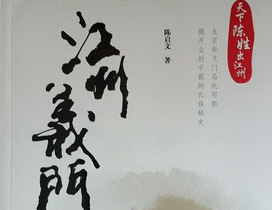 天下陈姓出江州
五百年义门乌托邦祭
揭开尘封千载的氏族秘史
陈启文 著
江州
義門